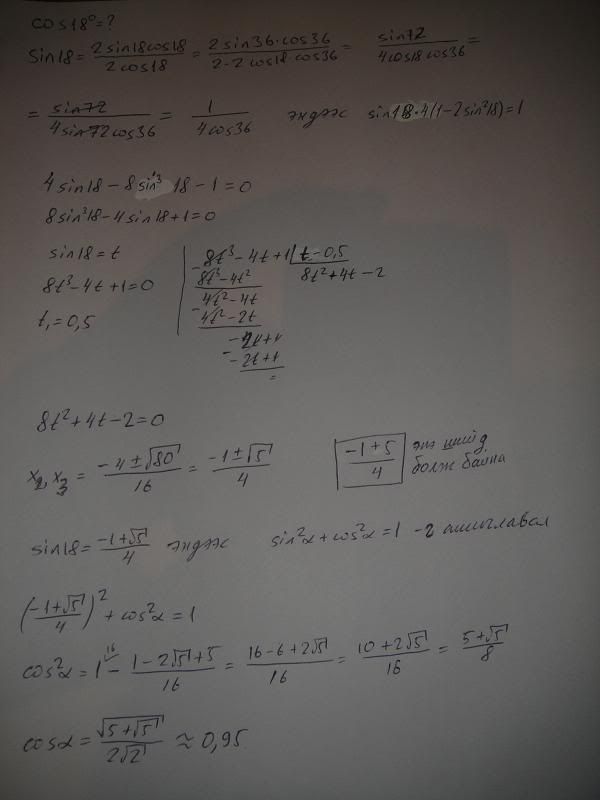 cos18°=?
sin18 = 2sin18cos18/2cos18 = 2sin36·cos36/2·2cos18·cos36 = sin72/4cos18cos36 =
= sin72/4sin72cos36 = 1/4cos36 эндээс sin18·4(1-2sin²18)=1
4sin18-8sin³18-1=0
8sin³18-4sin18+1=0
sin18=t
8t³-4t+1=0
t₁=0,5
8t³-4t+1 | t-0,5
8t³-4t² 8t²+4t-2
4t²-4t
4t²-2t
-2t+1
-2t+1
=
8t²+4t-2=0
x₂,x₃ = -4±√80/16 = -1±√5/4
-1+5/4 энэ шийд болж байна
sin18 = -1+√5/4 эндээс sin²α+cos²α=1 -г ашиглавал
(-1+√5/4)² + cos²α = 1
cos²α = 1 - 1-2√5+5/16 = 16-6+2√5/16 = 10+2√5/16 = 5+√5/8
cosα = √5+√5/2√2 ≈ 0,95